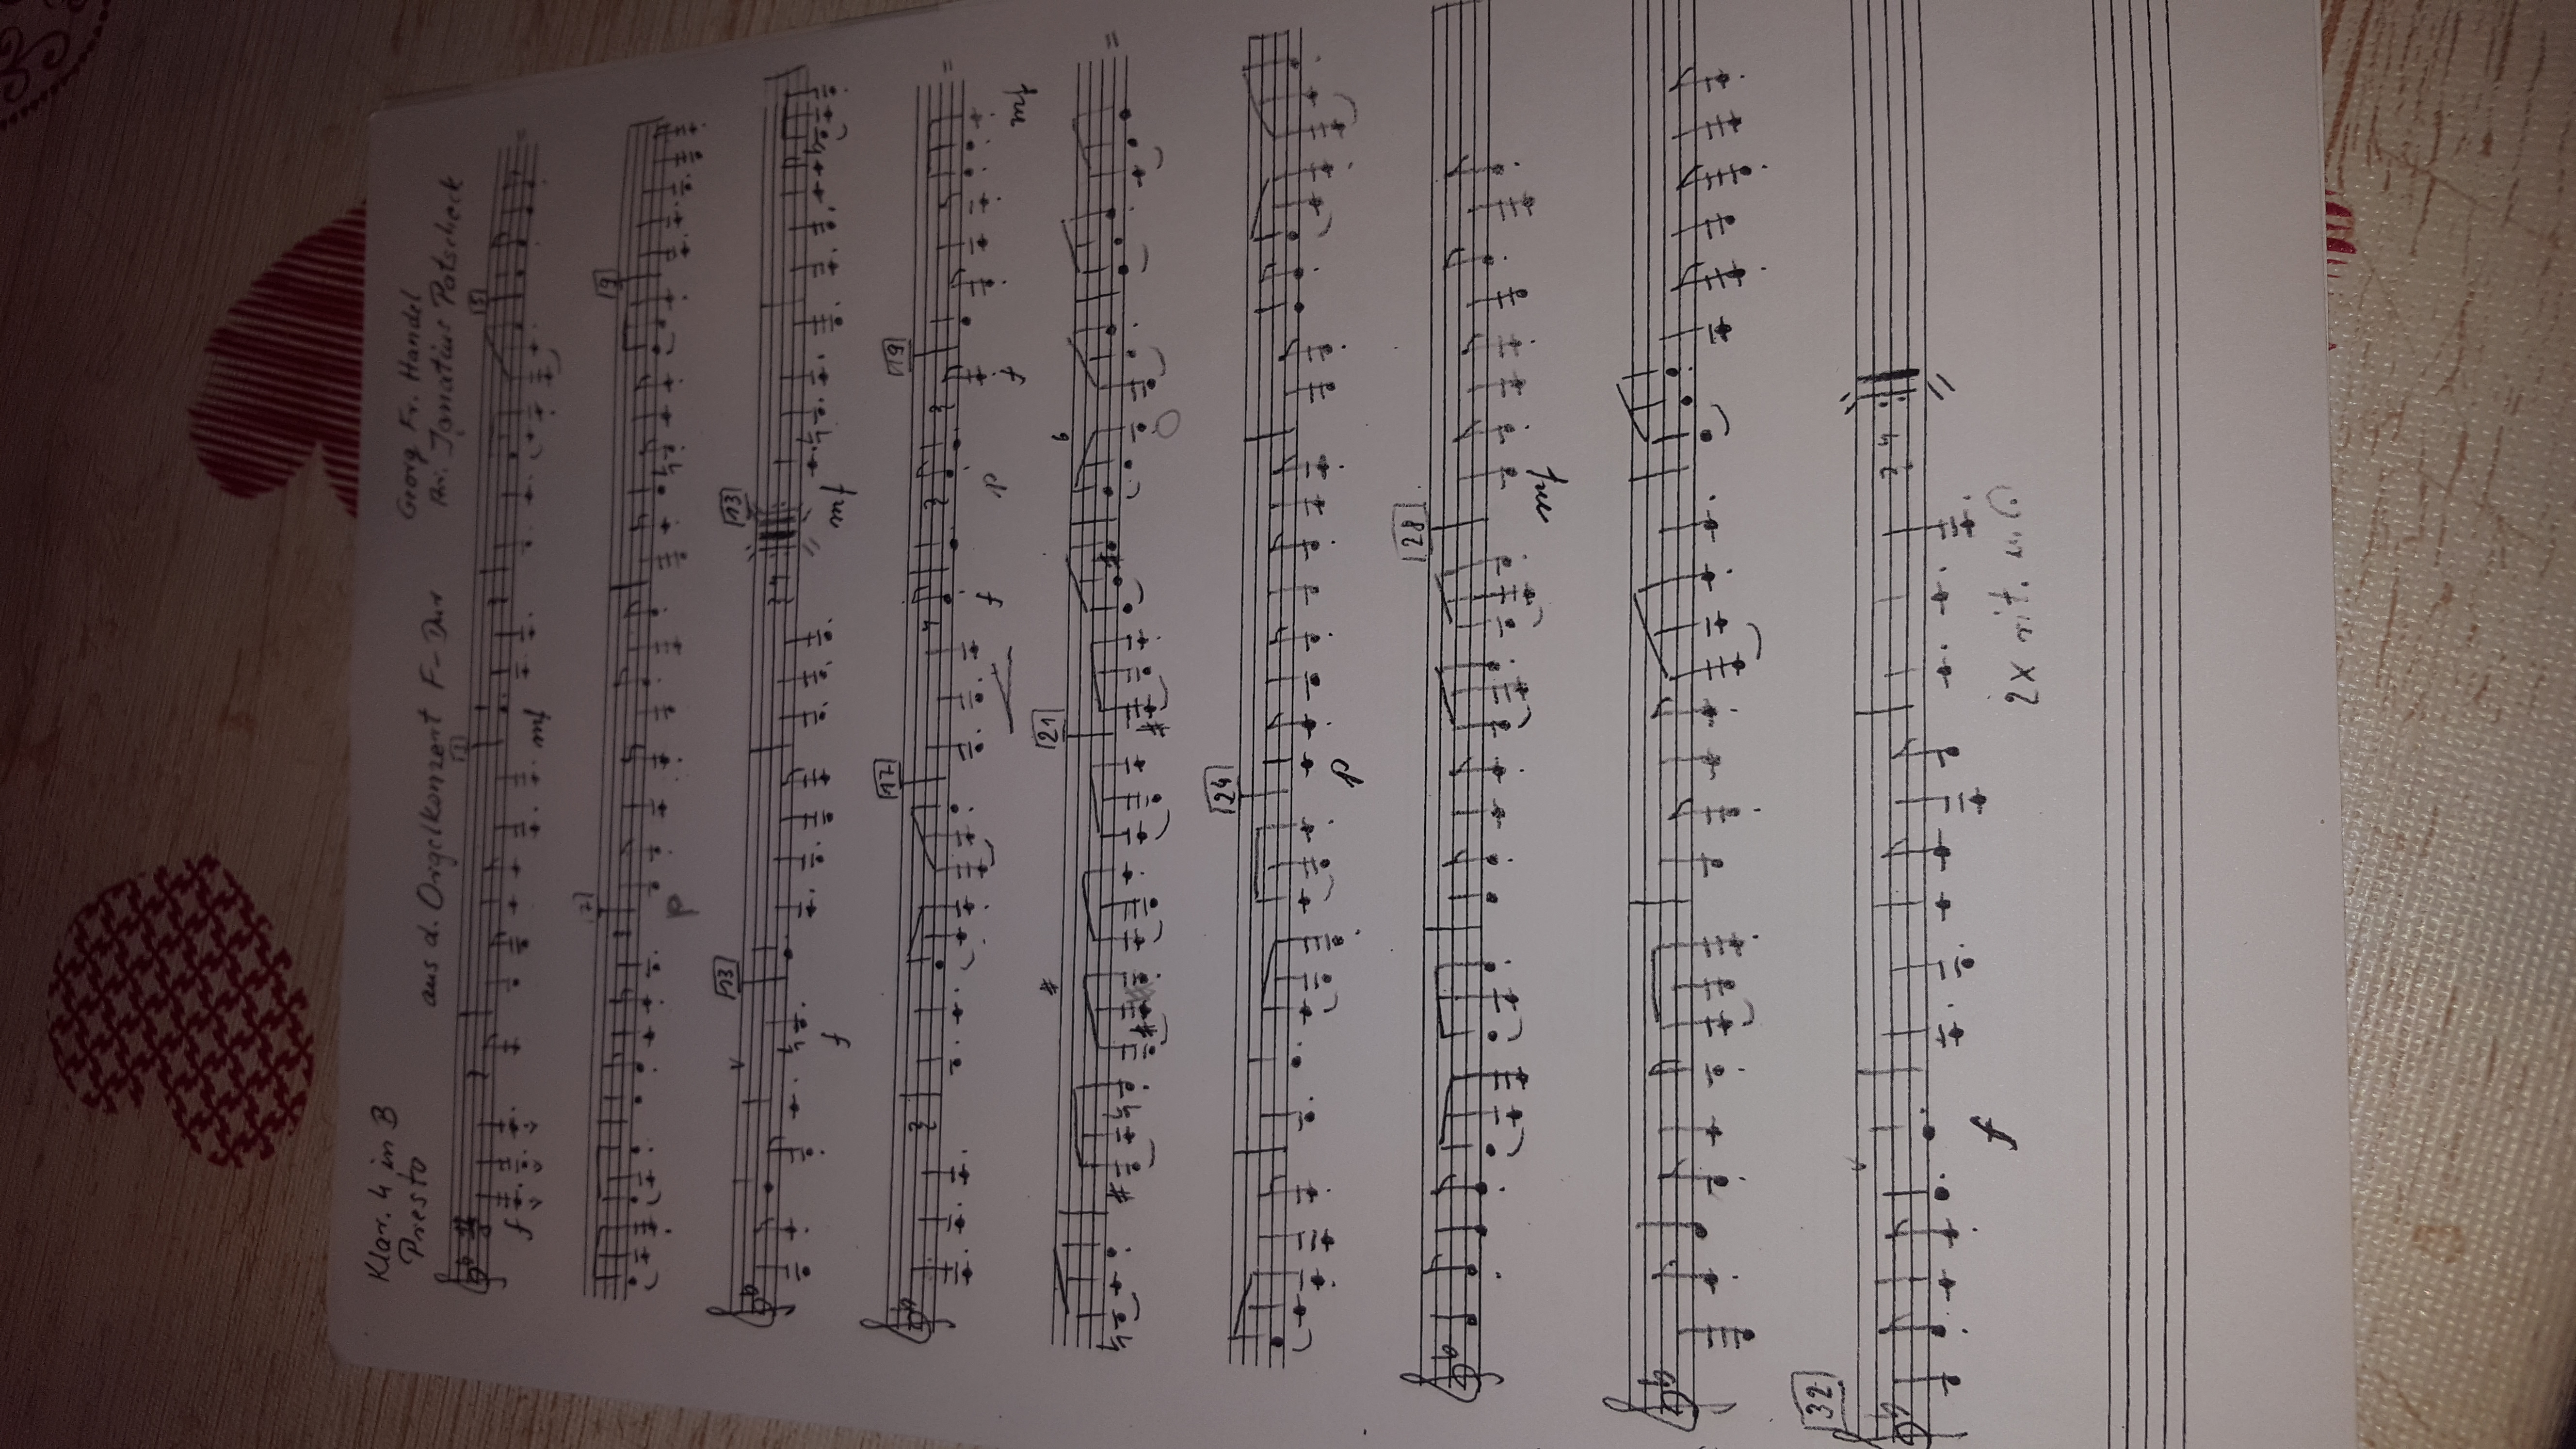 Klar. 4 in B
Presto
aus d. Orgelkonzert F-Dur
Georg Fr. Handel
Ar. Ignatius Patscheck
f
mf
5
7
p
9
13
13
f
mf
17
19
f
p
f
mf
21
6
24
p
28
mf
32
f
2x rit. u.